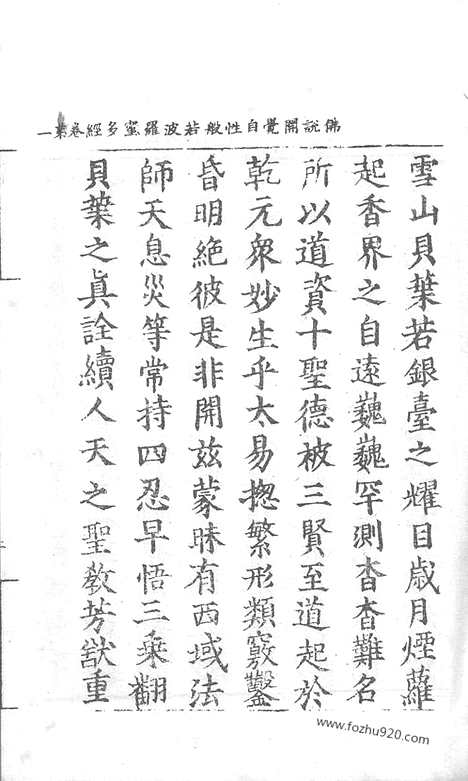 佛說開覺自性般若波羅蜜多經卷第一
雪山貝葉若銀臺之耀日歲月煙蘿
起香界之自遠巍巍罕測杳杳難名
所以道資十聖德被三賢至道起於
乾元衆妙生乎太易揔繁形類竅鑿
昏明絶彼是非開兹蒙昧有西域法
師天息災等常持四忍早悟三乘翻
貝葉之眞詮續人天之聖教芳猷重
www.fozhu920.com